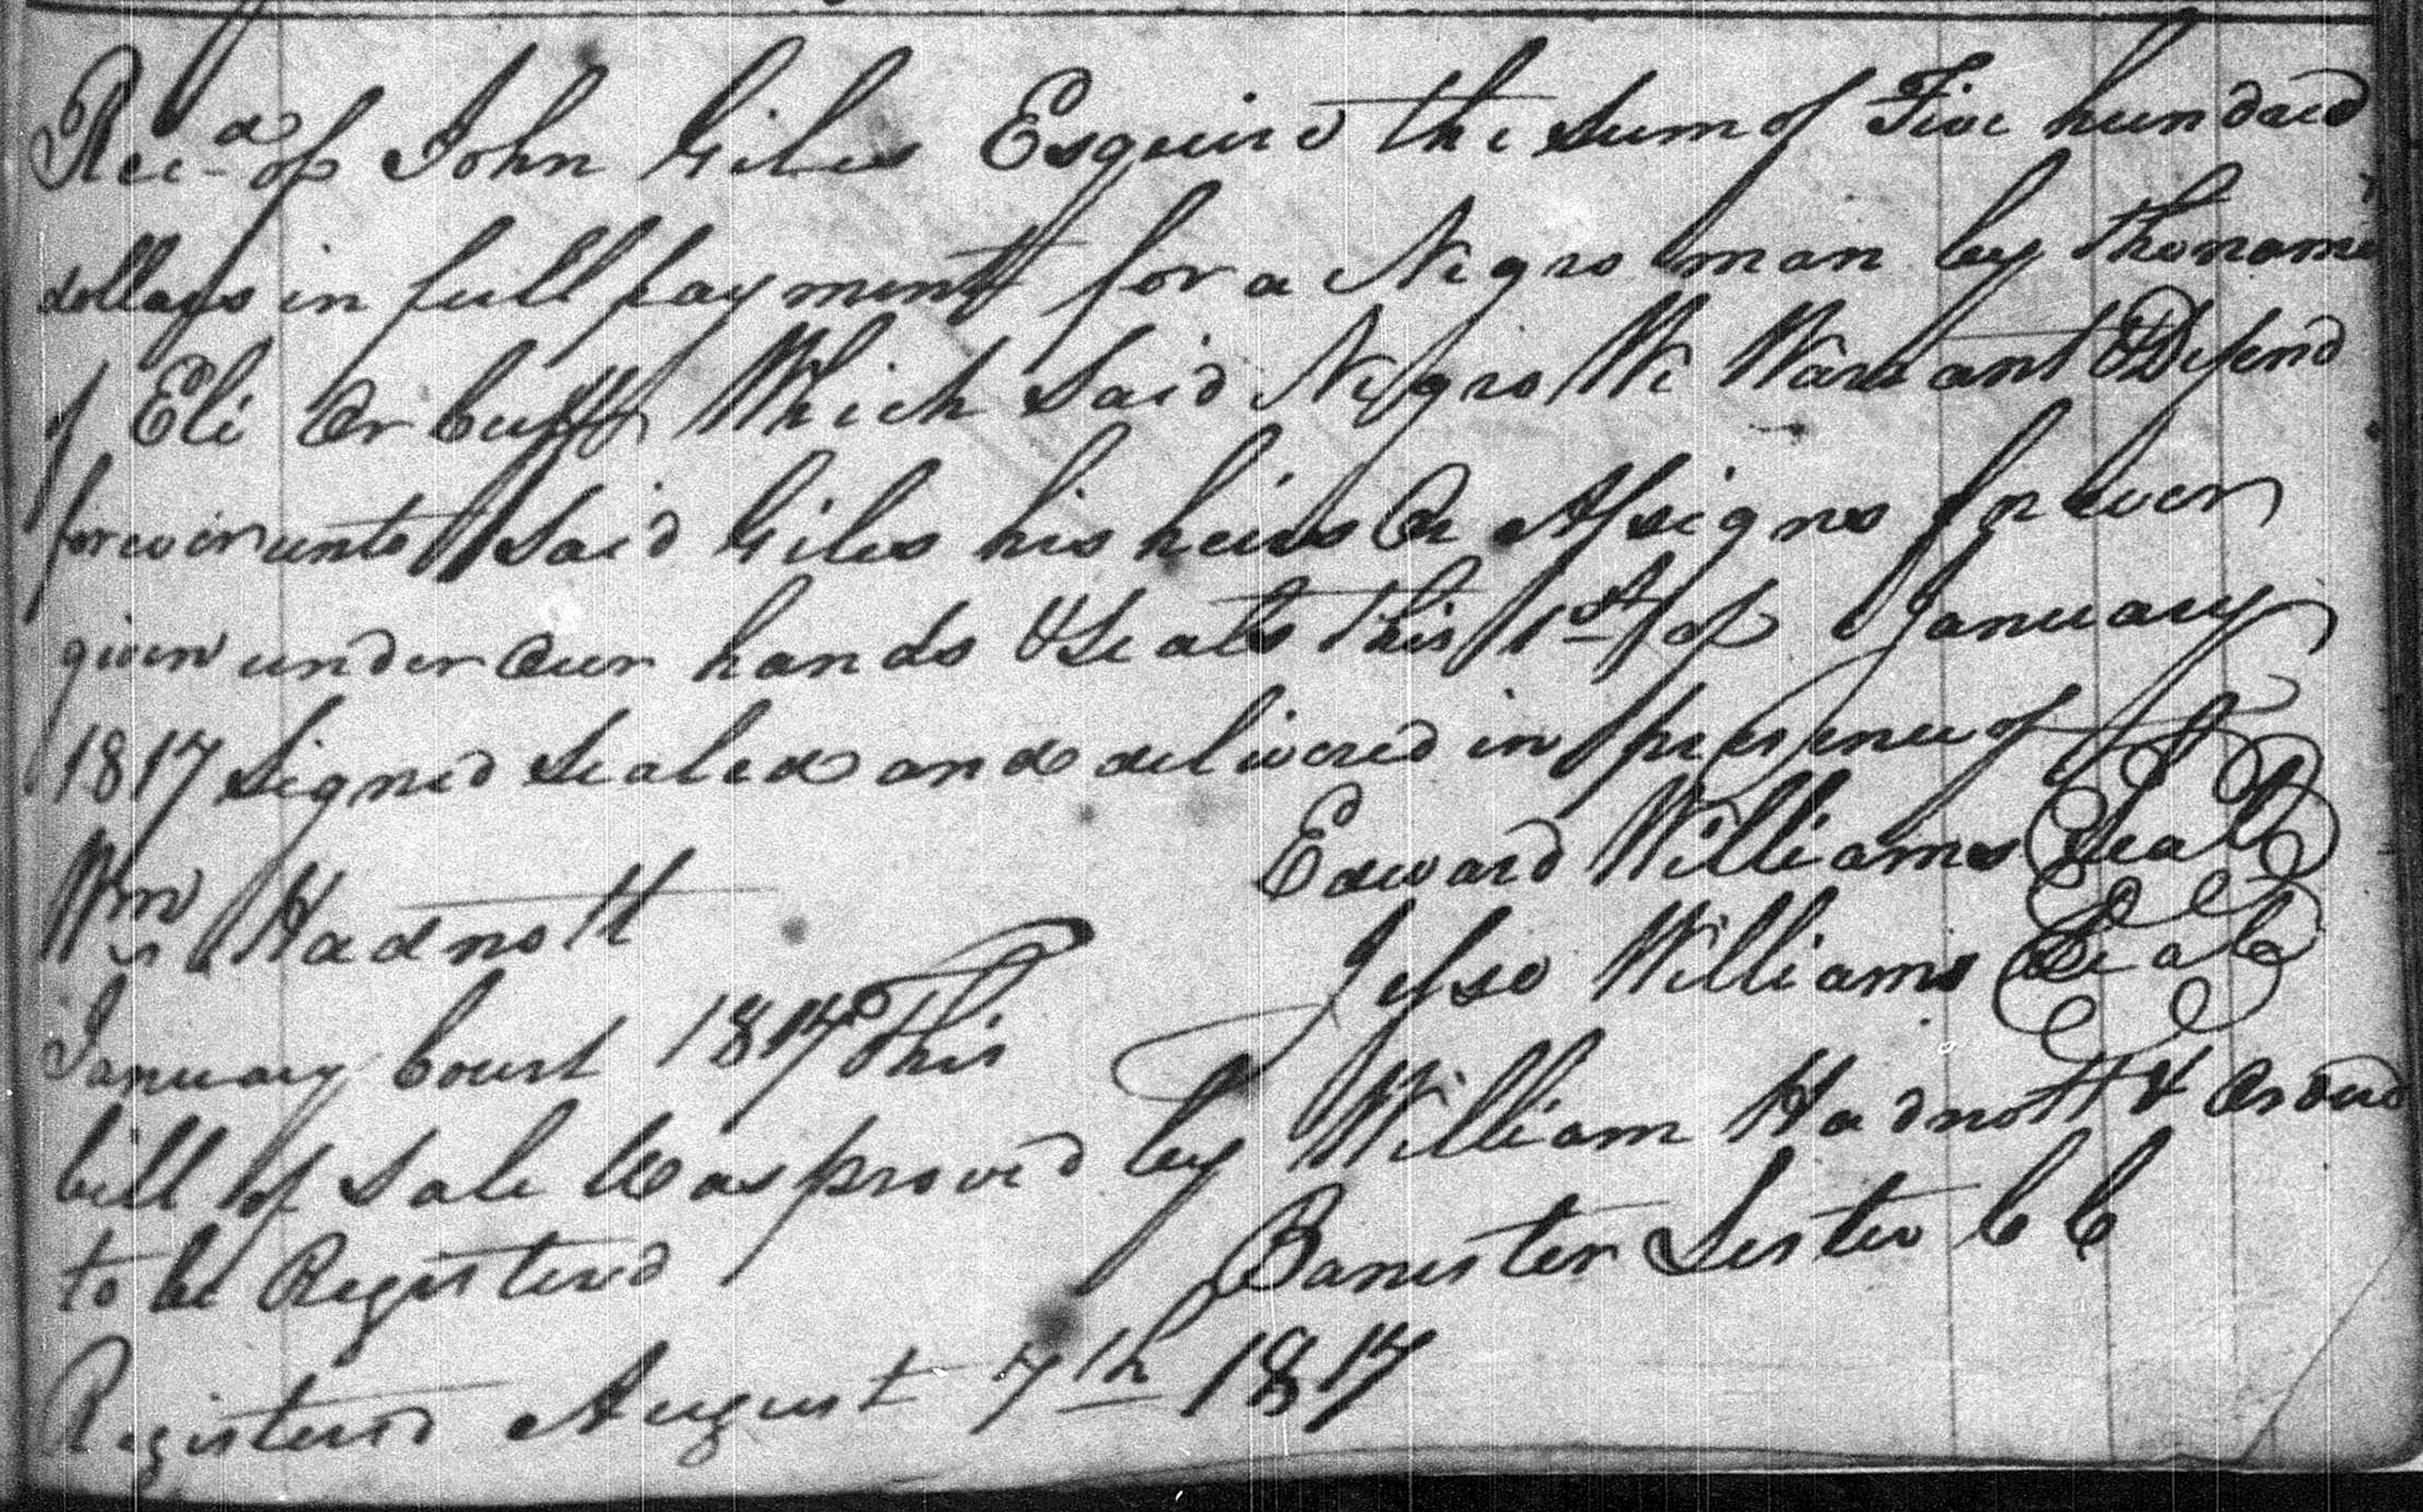 Recd of John Giles Esquire the Sum of Five hundred
dollars in full payment for a Negro man by the name
of Eli Or Cuff Which Said Negro We Warrant & Defend
forever unto Said Giles his heirs Or Assigns forever
given under Our hands & Seals this 1st of January
1817 Signed Sealed and delivered in presence of
Edward Williams Seal
Wm Hadnott
Jesse Williams Seal
January Court 1817 This
bill of Sale Was proved by William Hadnott & Ordered
to be Registered
Banister Lester CC
Registered August 7th 1817